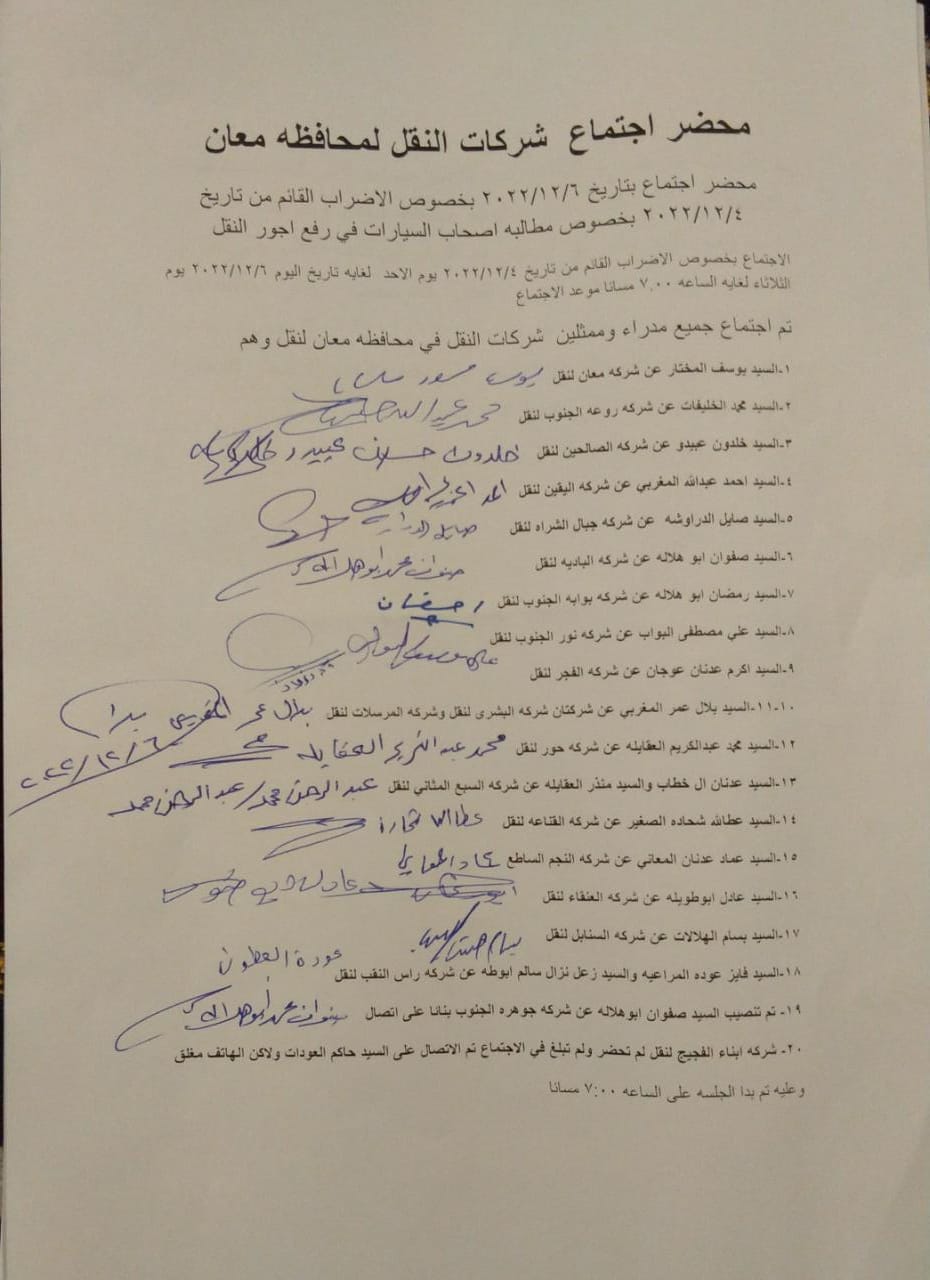 محضر اجتماع شركات النقل لمحافظه معان
محضر اجتماع بتاريخ ٢٠٢٢/١٢/٦ بخصوص الاضراب القائم من تاريخ
٢٠٢٢/١٢/٤ بخصوص مطالبه اصحاب السيارات في رفع اجور النقل
الاجتماع بخصوص الاضراب القائم من تاريخ ٢٠٢٢/١٢/٤ يوم الاحد لغايه تاريخ اليوم ٢٠٢٢/١٢/٦ يوم
الثلاثاء لغايه الساعه ٧,٠٠ مسائا موعد الاجتماع
تم اجتماع جميع مدراء وممثلين شركات النقل في محافظه معان لنقل وهم
١-السيد يوسف المختار عن شركه معان لنقل يوسف
٢-السيد محمد الخليفات عن شركه روعه الجنوب لنقل محمد عبدالله
٣-السيد خلدون عبيدو عن شركه الصالحين لنقل خلدون حسان عبيدو
٤-السيد احمد عبدالله المغربي عن شركه اليقين لنقل
٥-السيد صايل الدراوشه عن شركه جبال الشراه لنقل صايل
٦-السيد صفوان ابو هلاله عن شركه الباديه لنقل صفوان محمد ابو هلاله
٧-السيد رمضان ابو هلاله عن شركه بوابه الجنوب لنقل رمضان
٨-السيد علي مصطفى البواب عن شركه نور الجنوب لنقل علي مصطفى البواب
٩-السيد اكرم عدنان عوجان عن شركه الفجر لنقل
١٠-١١-السيد بلال عمر المغربي عن شركتان شركه البشرى لنقل وشركه المرسلات لنقل بلال عمر المغربي
٢٠٢٢/١٢/٦
١٢-السيد محمد عبدالكريم العقايله عن شركه حور لنقل محمد عبد الكريم العقايله
١٣-السيد عدنان ال خطاب والسيد منذر العقايله عن شركه السبع المثاني لنقل عبد الرحمن محمد/عبد الرحمن محمد
١٤-السيد عطالله شحاده الصغير عن شركه القناعه لنقل عطالله شحاده
١٥-السيد عماد عدنان المعاني عن شركه النجم الساطع عماد المعاني
١٦-السيد عادل ابوطويله عن شركه العنقاء لنقل عادل
١٧-السيد بسام الهلالات عن شركه السنابل لنقل بسام
١٨-السيد فايز عوده المراعيه والسيد زعل نزال سالم ابوطه عن شركه راس النقب لنقل عودة
١٩- تم تنصيب السيد صفوان ابوهلاله عن شركه جوهره الجنوب بنائا على اتصال صفوان محمد ابوهلاله
٢٠- شركه ابناء الفجيج لنقل لم تحضر ولم تبلغ في الاجتماع تم الاتصال على السيد حاكم العودات ولاكن الهاتف مغلق
وعليه تم بدا الجلسه على الساعه ٧:٠٠ مسائا